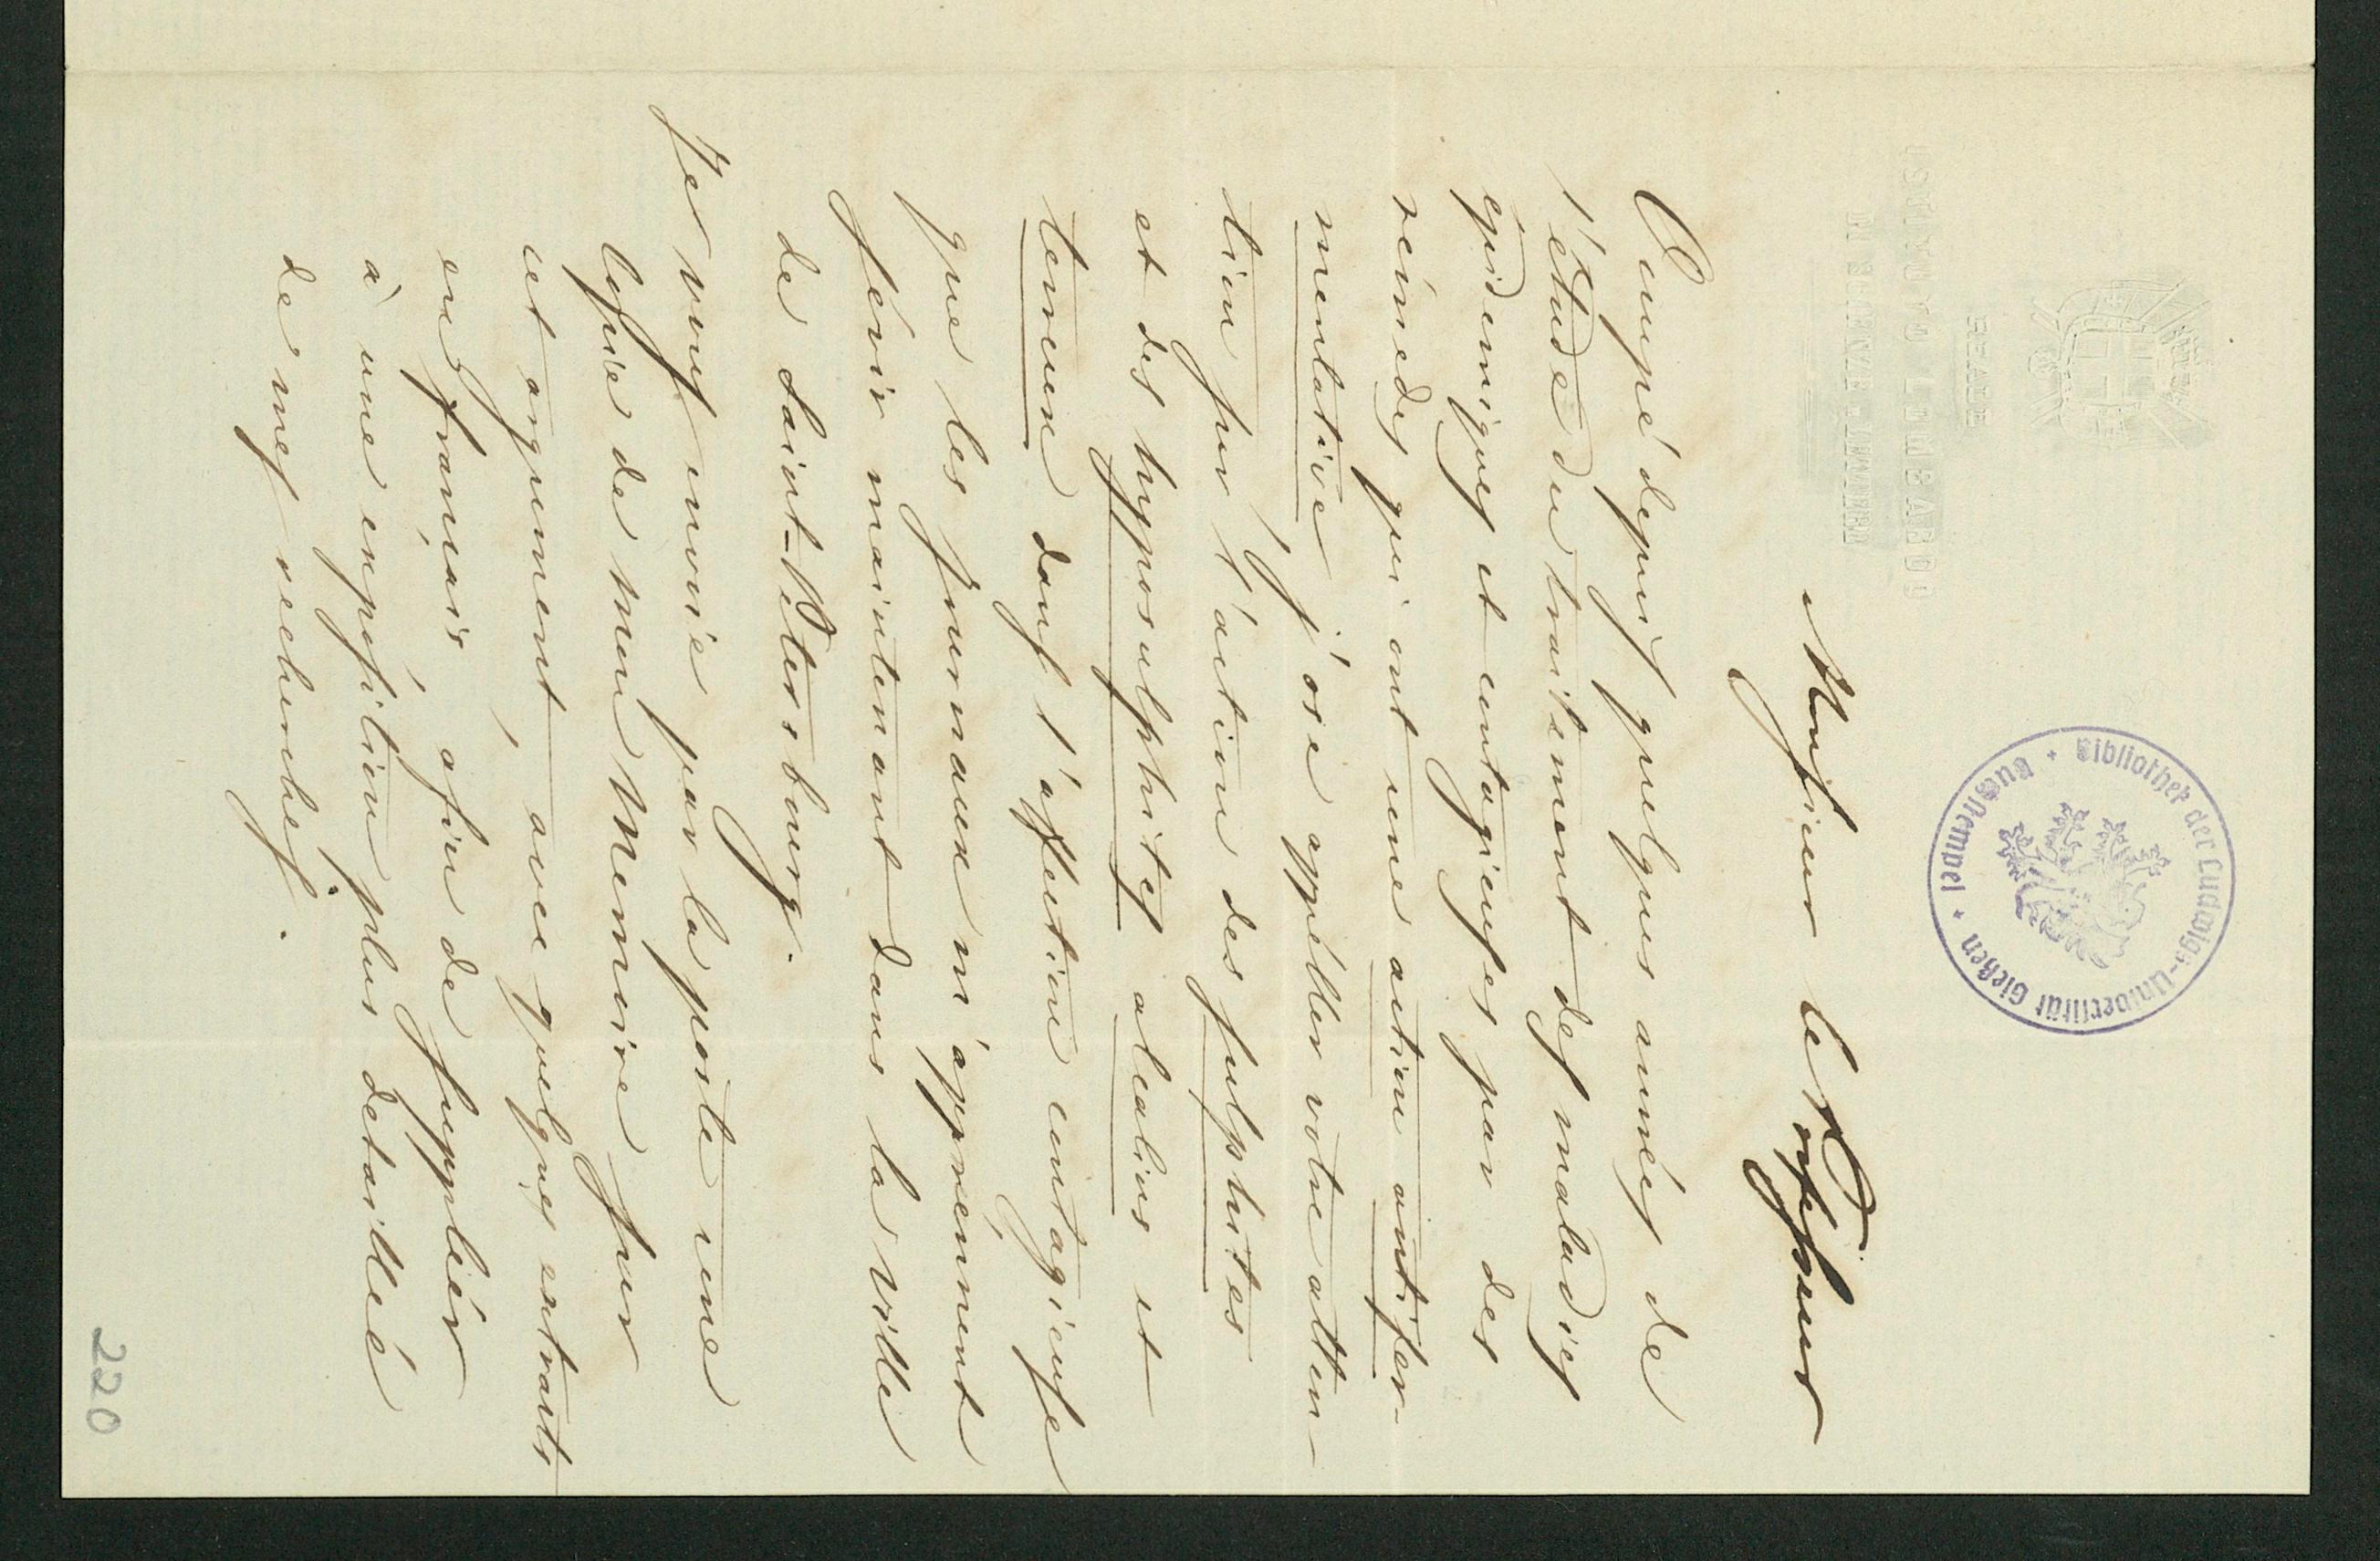 REALE
ISTITUTO LOMBARDO
DI SCIENZE E LETTERE
Bibliothek der Ludwigs-Universität Gießen
Monsieur le Professeur
Occupé depuis quelques années de
l'étude du traitement des maladies
épidemiques et contagieuses par des
rémedes qui ont une action antifer-
mentative, j'ose appéller votre atten-
tion sur l'action des sulphites
et des hyposulphites alcalins et
terreux dans l'affection contagieuse
que les journaux m'apprénnent
sévir maintenant dans la ville
de Saint-Petersbourg.
Je vous envoie par la poste une
copie de mon Memoire sur
cet argument, avec quelques extraits
en français, afin de suppléer
à une exposition plus detaillée
de mes recherches.
220